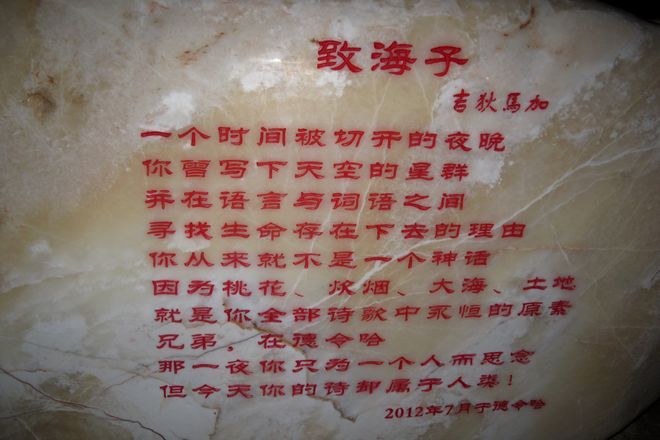 致海子
吉狄馬加
一个时间被切开的夜晚
你曾写下天空的星群
并在语言与词语之间
寻找生命存在下去的理由
你从来就不是一个神话
因为桃花、炊烟、大海、土地
就是你全部诗歌中永恒的原素
兄弟，在德令哈
那一夜你只为一个人而思念
但今天你的诗却属于人类！
2012年7月于德令哈